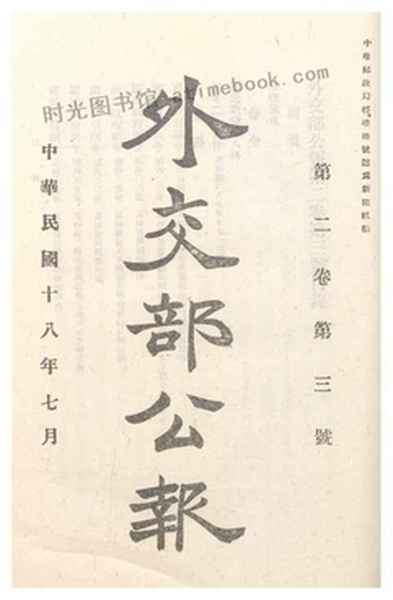 中華郵政局特准掛號認爲新聞紙類
第二卷第三號
外交部公報
中華民國十八年七月
时光图书馆 atimebook.com